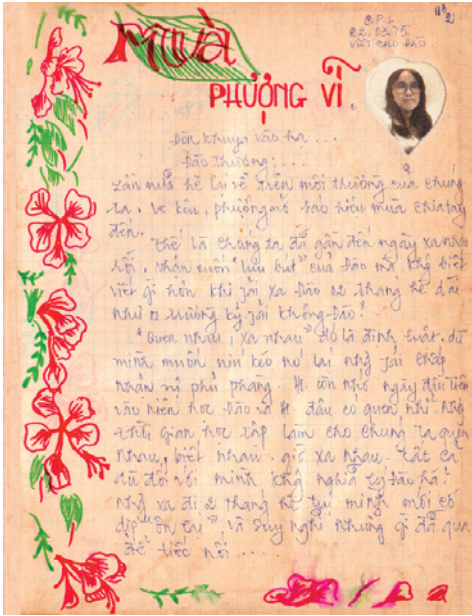 11b2
C.P.L
22.03.75
VIẾT CHO ĐÀO
Mùa
PHƯỢNG VĨ
Đêm khuya vào hạ...
Đào thương:...
Lần nữa hè lại về trên môi trường của chúng
ta, ve kêu, phượng nở báo hiệu mùa chia tay
đến.
Thế là chúng ta đã gần đến ngày xa nhau
rồi. Nhận cuốn "lưu bút" của Đào mà khg biết
viết gì hơn khi jải xa Đào 02 tháng hè dài
như trường kỳ jải không Đào?
"Quen nhau, xa nhau" đó là định luật. dù
mình muốn níu kéo nó lại nhg jải chấp
nhận sự phũ phàng. H. còn nhớ ngày đầu tiên
vào niên học Đào và H. đâu có quen, nhỉ. Nhg
thời gian học tập làm cho chúng ta quen
nhau, biết nhau. giờ xa nhau. tất cả
đối với mình khg nghĩa lý Đào hả?
Nhg xa đi 2 tháng hè mình mới có
dịp "ôn lại" và suy nghĩ những gì đã qua
để tiếc nối....